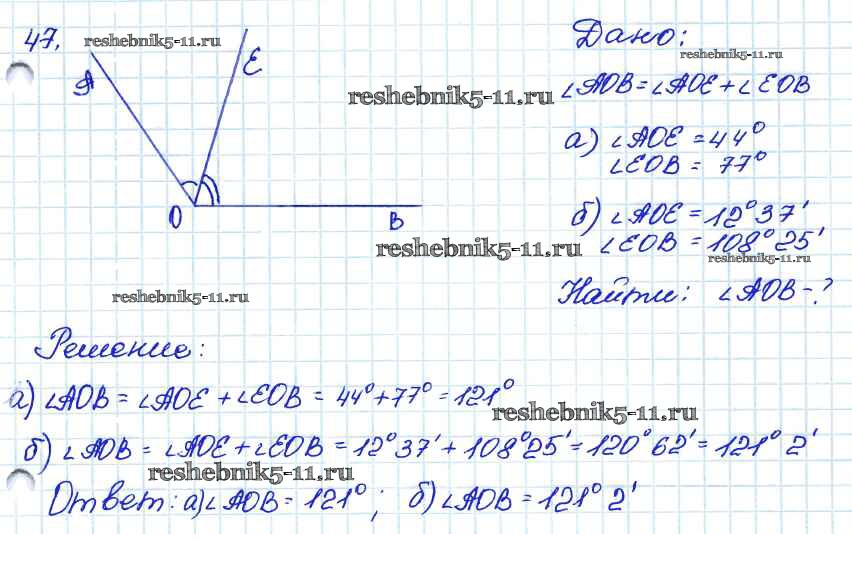 47.
reshebnik5-11.ru
A
E
O
B
reshebnik5-11.ru
Дано:
reshebnik5-11.ru
∠AOB = ∠AOE + ∠EOB
а) ∠AOE = 44°
∠EOB = 77°
б) ∠AOE = 12° 37'
∠EOB = 108° 25'
reshebnik5-11.ru
reshebnik5-11.ru
Найти: ∠AOB - ?
reshebnik5-11.ru
Решение:
а) ∠AOB = ∠AOE + ∠EOB = 44° + 77° = 121°
reshebnik5-11.ru
б) ∠AOB = ∠AOE + ∠EOB = 12° 37' + 108° 25' = 120° 62' = 121° 2'
reshebnik5-11.ru
Ответ: а) ∠AOB = 121° ; б) ∠AOB = 121° 2'